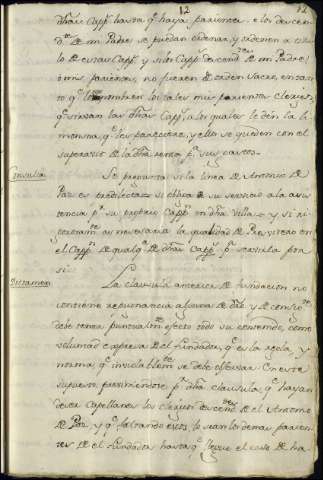 12
dhas Capp.s hasta q.e haya parientes, o los descend
tes de mi Padre se puedan ordenar, y ordenen a titu
lo de estas Capp.s y si los Capp.s descend.tes de mi Padre,
o mis parientes, no fueren de orden sacro, en tan
to q.e lo nombren los tales mis parientes clerigos,
q.e sirvan las dhas Capp.s a los quales le den la li
mosna, q.e les pareciere, y ellos se queden con el
superavit de la dha renta p.a sus gastos.
Consulta Se pregunta si la linea de Antonio de
Paz es predilecta: si obliga su servicio a la asis
tencia p.r su proprio Capp.n en dha Villa: y si ni
es necesaria la qualidad de Presvitero en
el Capp.n de qualq.a de dhas Capp.s p.a servirla por
si.
Dictamen La clausula anterior de fundacion no
contiene repugnancia alguna de dro, y de consig.te
debe tener puntual efecto todo su contenido, como
voluntad expresa de el fundador, q.e es la regla, y
norma, q.e inviolablem.te se debe observar. En este
supuesto, previniendose p.r dha clausula, q.e hayan
de ser Capellanes los clerigos descend.tes de el Antonio
de Paz, y q.e faltando estos, lo sean los demas parien
tes de el fundador hasta q.e llegue el caso de ha